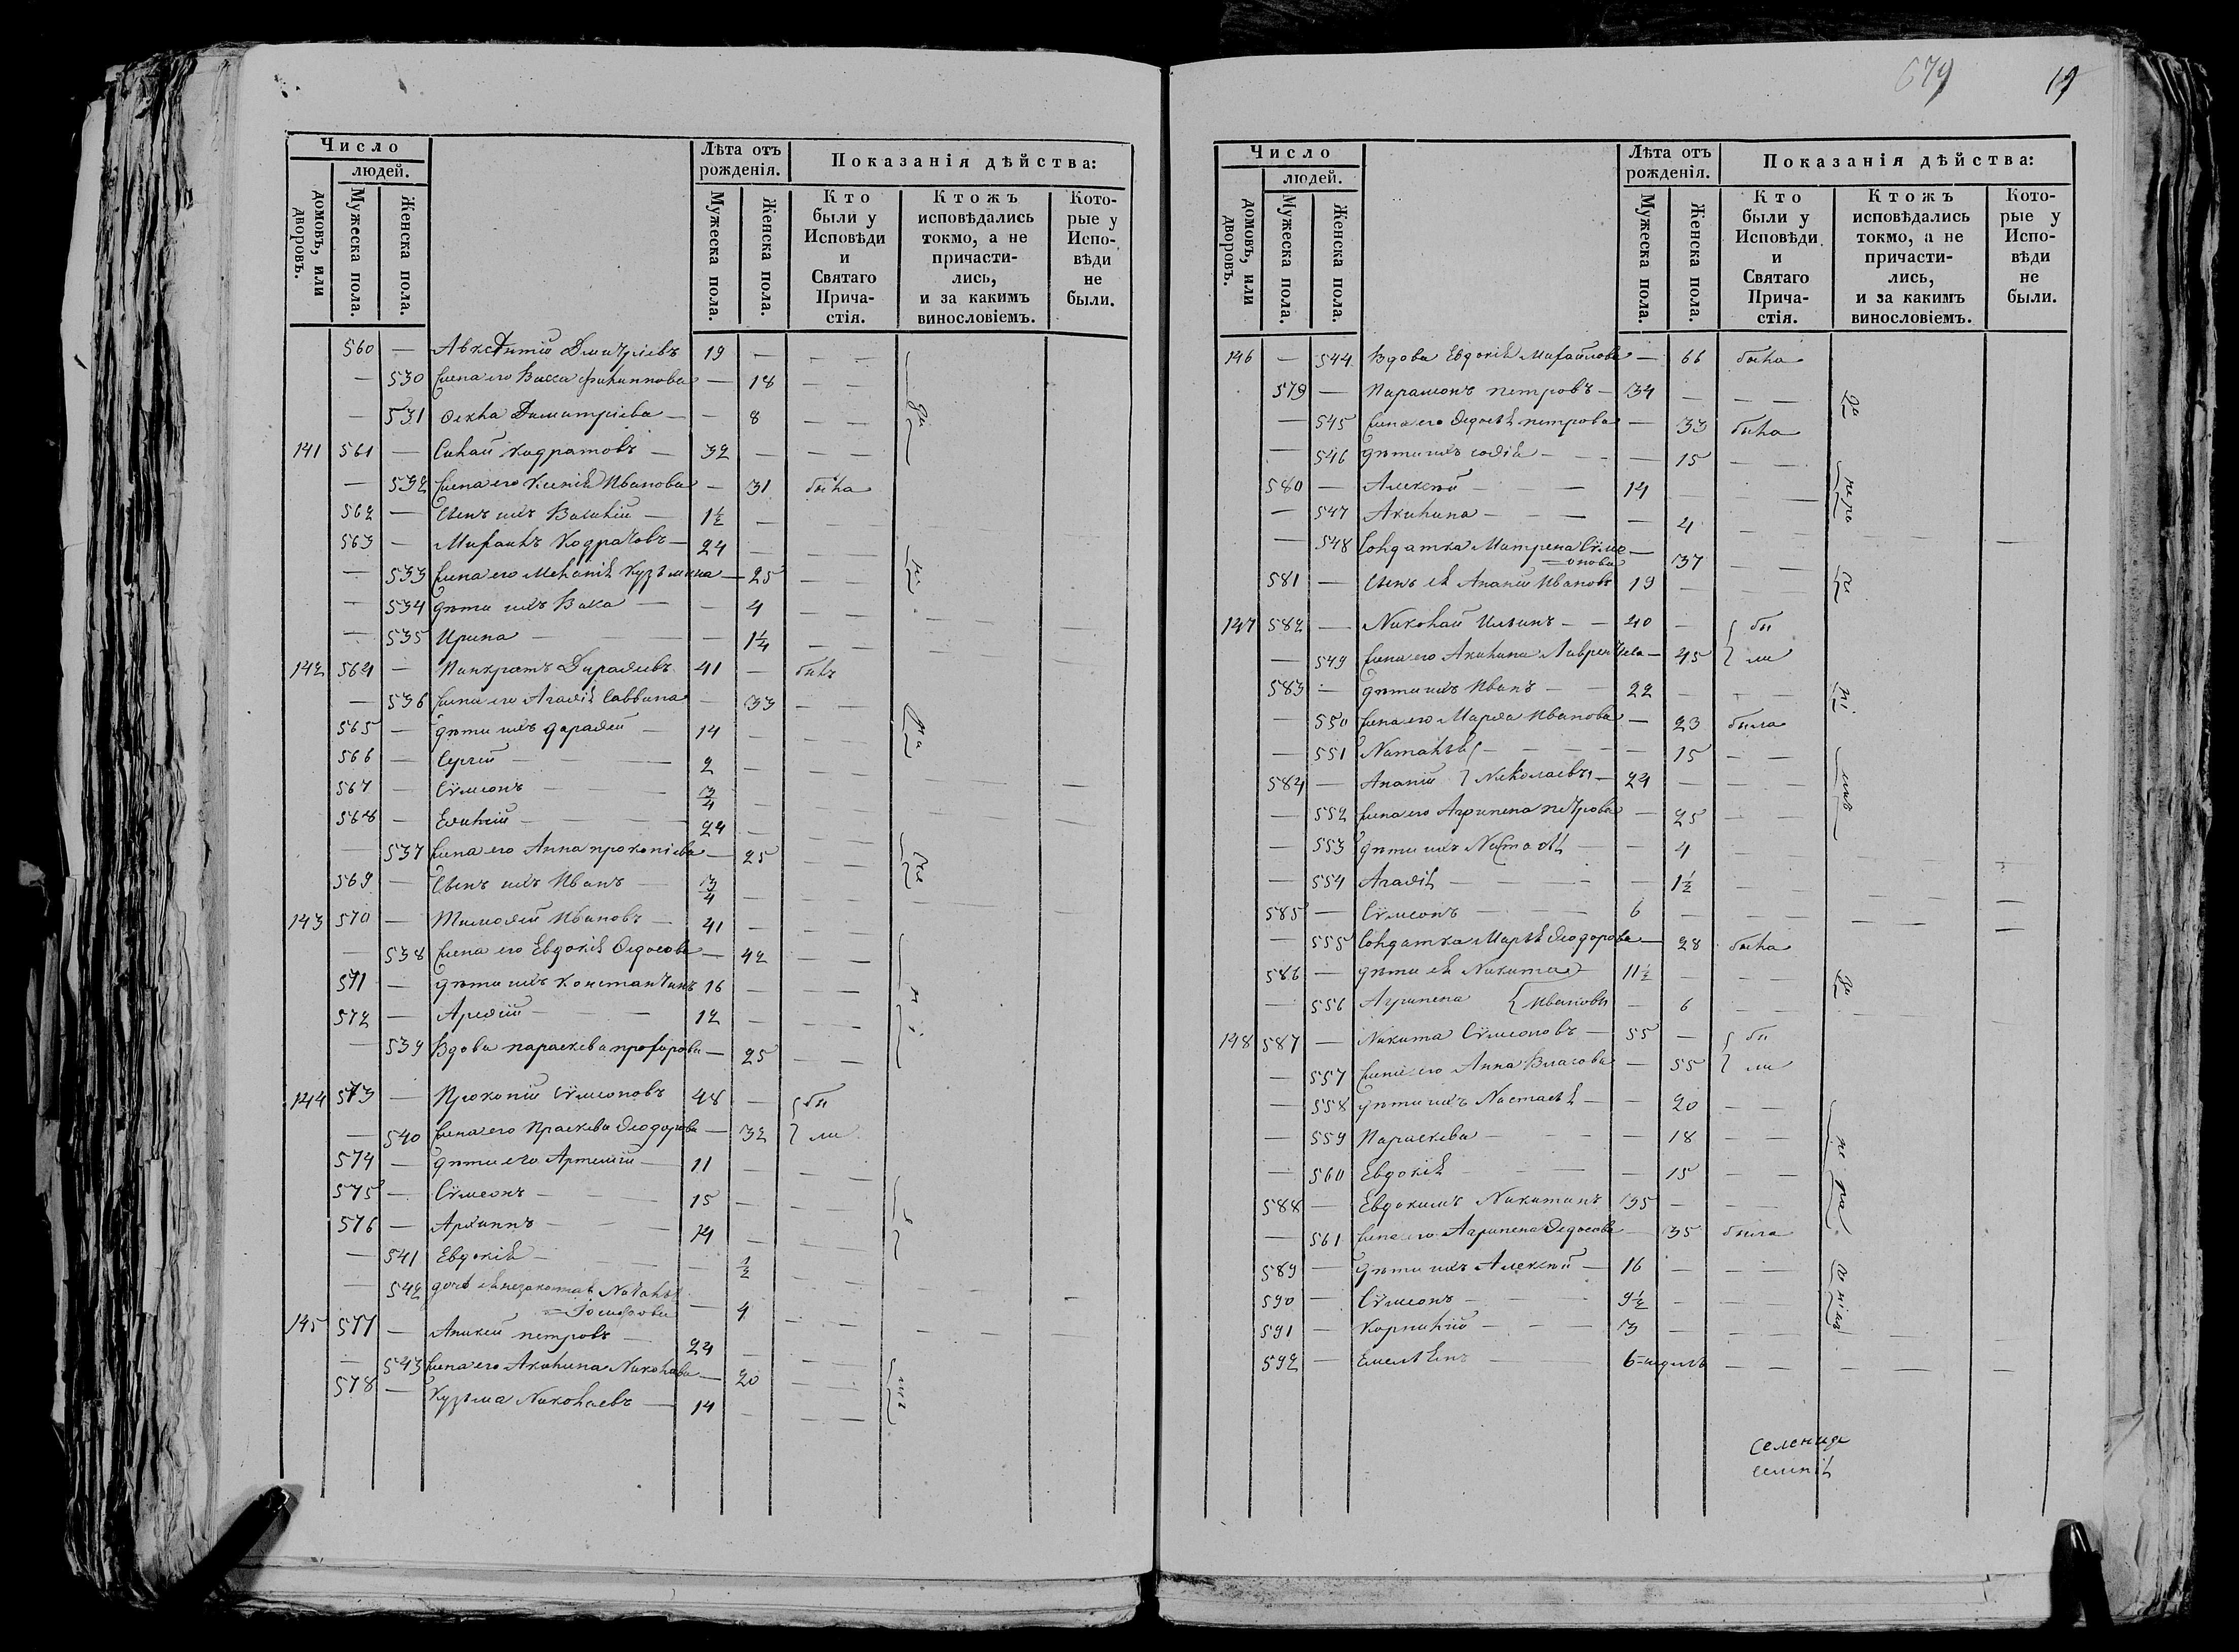 Число
людей.
домовъ, или дворовъ.
Мужеска пола.
Женска пола.
Лѣта отъ рожденія.
Мужеска пола.
Женска пола.
Показанія дѣйства:
Кто были у Исповѣди и Святаго Прича-стія.
Ктожъ исповѣдались токмо, а не причасти-лись, и за какимъ винословіемъ.
Кото-рые у Испо-вѣди не были.
560 — Авксентій Дмитріевъ 19 —
— 530 жена его Васса Филиппова — 18
— 531 Ѳекла Димитріева — 8
141 561 — Силай Кодратовъ — 32 —
— 532 жена его Ксенія Иванова — 31 была
562 — Сынъ ихъ Василій — 1½ —
563 — Михаилъ Кодратовъ — 24 —
— 533 жена его Меланія Кузьмина — 25
— 534 дѣти ихъ Васа — 4
— 535 Ирина — 1¼
142 564 — Панкратъ Дараѳіевъ 41 — былъ
— 536 жена его Агаѳія Саввина — 33
565 — дѣти ихъ Дараѳей — 14 —
566 — Сергій — 2 —
567 — Сѵмеонъ — ¾ —
568 — 24 —
— 537 жена его Анна Прокопіева — 25
569 — Сынъ ихъ Иванъ — ¾ —
143 570 — Тимоѳей Ивановъ — 41 —
— 538 жена его Евдокія Ѳедосова — 42
571 — дѣти ихъ Константинъ 16 —
572 — Ареѳій — 12 —
— 539 Вдова Параскева Прохорова — 25
144 573 — Прокопій Сѵмеоновъ 48 — бы
— 540 жена его Праскева Ѳеодорова — 32 ли
574 — дѣти его Артемій — 11 —
575 — Сѵмеонъ — 15 —
576 — Архиппъ — 14 —
— 541 Евдокія — ½
— 542 дочь ея незаконная Наталья — 4
145 577 — Аникей Петровъ — 24 —
— 543 жена его Акилина Николаева — 20
578 — Кузьма Николаевъ — 14 —
679 19
Число
людей.
домовъ, или дворовъ.
Мужеска пола.
Женска пола.
Лѣта отъ рожденія.
Мужеска пола.
Женска пола.
Показанія дѣйства:
Кто были у Исповѣди и Святаго Прича-стія.
Ктожъ исповѣдались токмо, а не причасти-лись, и за какимъ винословіемъ.
Кото-рые у Испо-вѣди не были.
146 — 544 Вдова Евдокія Михайлова — 66 была
579 — Парамонъ Петровъ — 34 —
— 545 жена его Ѳедосья Петрова — 33 была
— 546 дѣти ихъ Софія — 15
580 — Алексѣй — 14 —
— 547 Акилина — 4
— 548 Солдатка Матрена Сѵме=онова — 37
581 — Сынъ ея Ананій Ивановъ 19 —
147 582 — Николай Ильинъ — 40 — бы
— 549 жена его Акилина Лаврентьева — 45 ли
583 — дѣти ихъ Иванъ — 22 —
— 550 жена его Марѳа Иванова — 23 была
— 551 Наталья — 15
584 — Ананій Николаевы — 24 —
— 552 жена его Агрипена Петрова — 25
— 553 дѣти ихъ Настасья — 4
— 554 Агаѳія — 1½
585 — Сѵмеонъ — 6 —
— 555 Солдатка Марья Ѳеодорова — 28 была
586 — дѣти ея Никита 11½ —
— 556 Агрипена Ивановы — 6
148 587 — Никита Сѵмеоновъ — 55 — бы
— 557 жена его Анна Власова — 55 ли
— 558 дѣти ихъ Настасья — 20
— 559 Параскева — 18
— 560 Евдокія — 15
588 — Евдокимъ Никитинъ 35 —
— 561 жена его Агрипена Ѳедосова — 35 была
589 — дѣти ихъ Алексѣй — 16 —
590 — Сѵмеонъ — 9½ —
591 — Корнилій — 3 —
592 — Емельянъ — 6 недѣль —